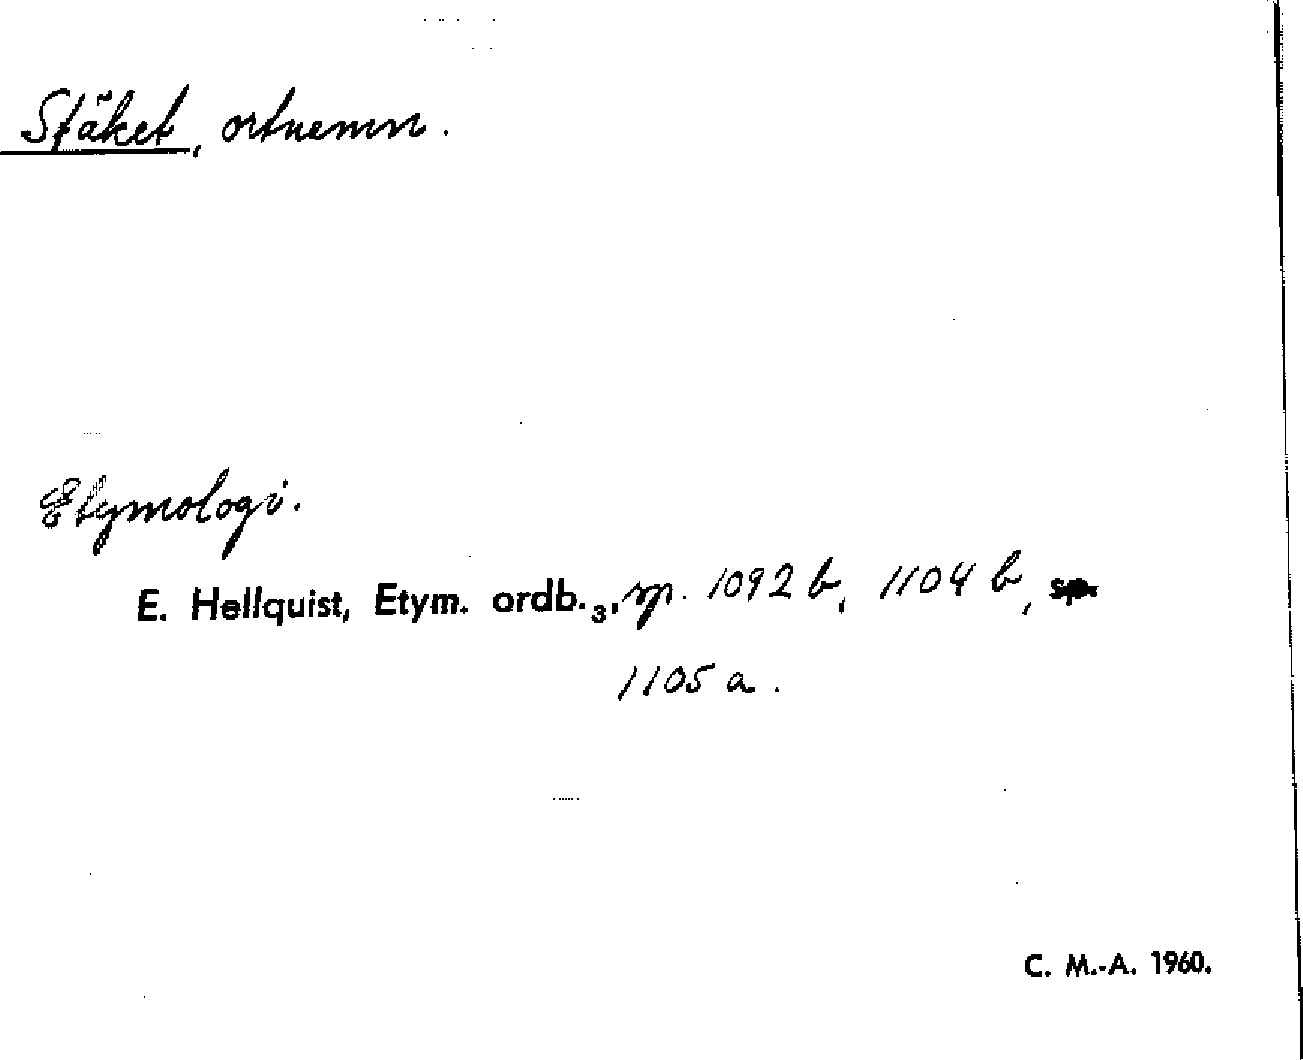 Stäket, ortnamn.
Etymologi.
E. Hellquist, Etym. ordb.₃, sp. 1092 b, 1104 b, sp.
1105 a.
C. M.-A. 1960.